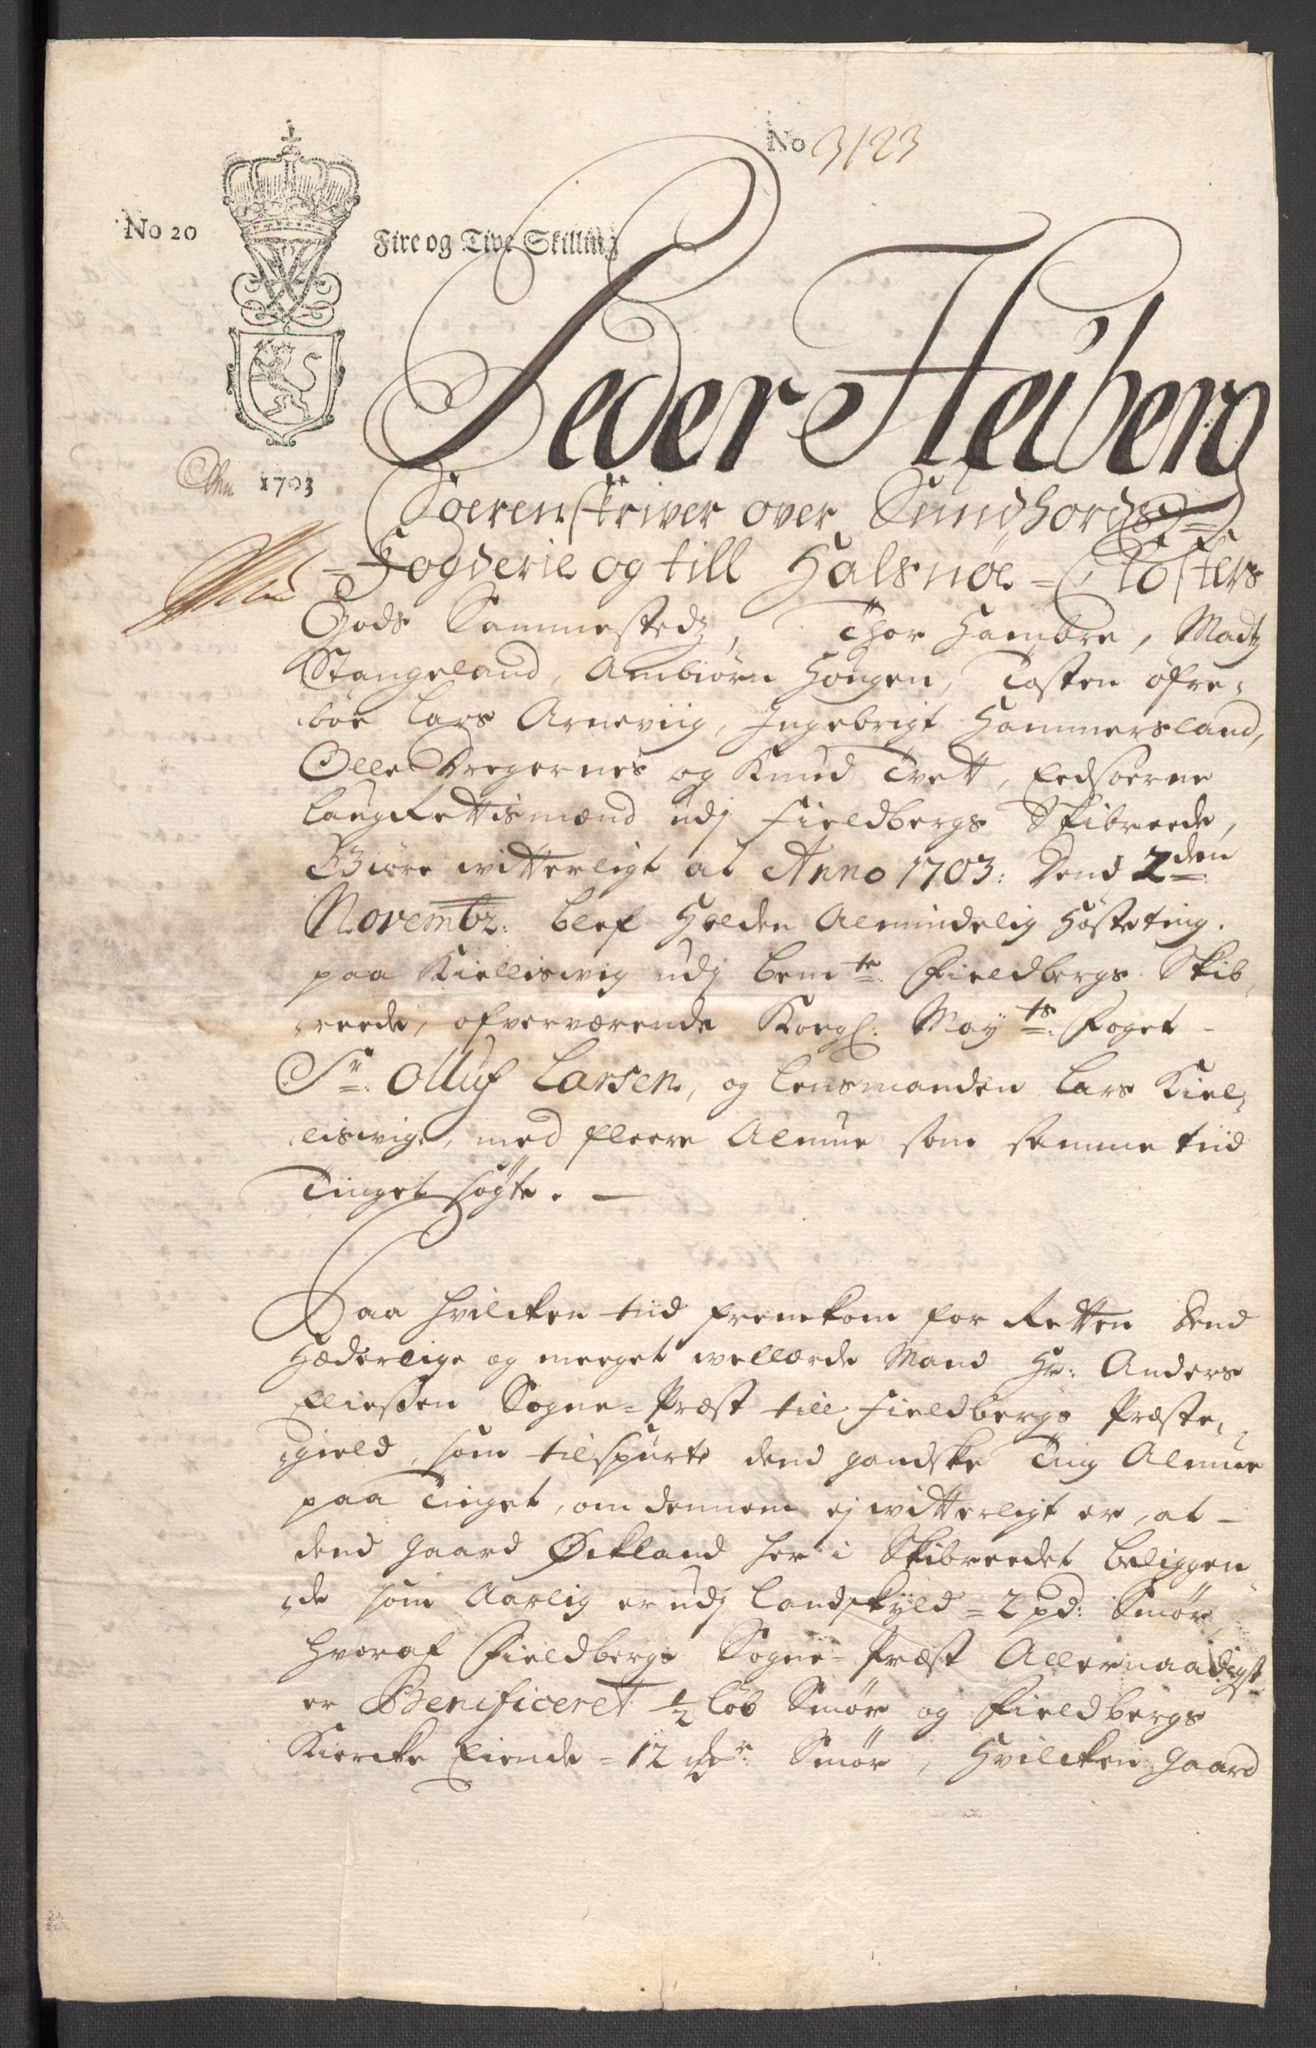 No 3123
No 20
Fire og Tive Skilling
1703
Peder Heiberg
Soerenskriver over Sundhords=
Fogderie og till Halsnöe=Closters
Gods Sammestedz, Thor Hambre, Madtz
Stangeland, Ambiørn Hougen, Tosten öfre,
böe Lars Arneviig, Ingebrigt Hammersland,
Olle Dregernes og Knud Tvett, Eedsoerne
Laugrettismænd udj Fieldbergs Skibreede,
Giöre witterligt at Anno 1703: Dend 2den
Novembr: blef holden Almindelig Hösteting
paa Kiellisvig udj bemte Fieldbergs Skib,
reede, ofverværende Kongl: Mayts: Foget
Sr: Olluf Larsen, og Lensmanden Lars Kiel,
lisvig, med fleere Almue som samme tiid
Tinget søgte.
Paa hvilcken tiid fremkom for Retten Dend
Hæderlige og meeget wellærde Mand Hr: Anders
Elieszen Sogne=Præst till Fieldbergs Præste,
gield, som tilspurte dend gandske Ting Almue
paa Tinget, om dennem ej witterligt er, at
dend gaard Öckland her i Skibreedet beliggen
de som Aarlig er udj Landskyld = 2 pd: Smör,
hvoraf Fieldbergs Sogne=Præst Allernaadigst
er Benificeret 1/2 Löb Smör og Fieldbergs
Kiercke Eiende = 12 mkr: Smör, Hvilcken gaard